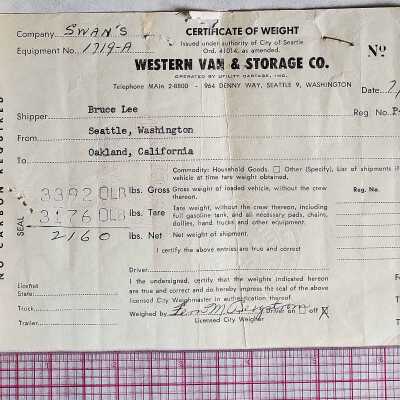 Company SWAN'S
CERTIFICATE OF WEIGHT
Nº
Equipment No. 1719-A
Issued under authority of City of Seattle
Ord. 41014, as amended.
WESTERN VAN & STORAGE CO.
OPERATED BY UTILITY CARTAGE, INC.
Telephone MAin 2-8800 - 964 DENNY WAY, SEATTLE 9, WASHINGTON
Date
Shipper Bruce Lee
Reg. No.
From Seattle, Washington
To Oakland, California
NO CARBON REQUIRED
Commodity: Household Goods. Other (Specify). List of shipments if
vehicle at time tare weight obtained.
lbs. Gross Gross weight of loaded vehicle, without the crew thereon.
Reg. No.
SEAL
lbs. Tare Tare weight, without the crew thereon, including full gasoline tank, and all necessary pads, chains, dollies, hand trucks and other equipment.
2160 lbs. Net Net weight of shipment.
I certify the above entries are true and correct
Driver
License
State:
I the undersigned, certify that the weights indicated hereon
are true and correct and do hereby impress the seal of the above
licensed City Weighmaster in authentication thereof.
Truck
Weighed by Driver on off X
Trailer
Licensed City Weigher